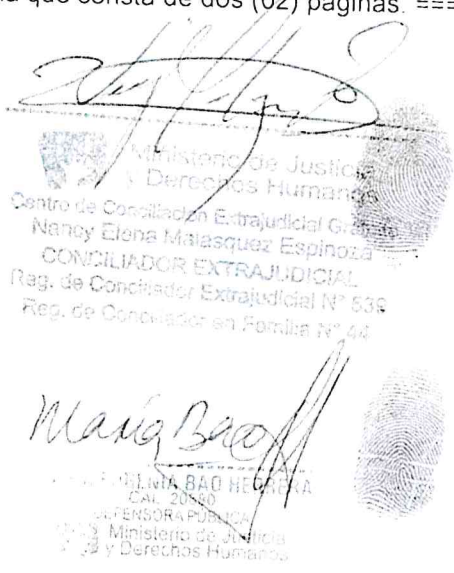 que consta de dos (02) páginas. ===
Ministerio de Justicia
y Derechos Humanos
Centro de Conciliación Extrajudicial
Nancy Elena Malasquez Espinoza
CONCILIADOR EXTRAJUDICIAL
Reg. de Conciliador Extrajudicial N° 539
Reg. de Conciliador en Familia N° 44
María Bao
BAO HERRERA
CAL
DEFENSORA PÚBLICA
Ministerio de Justicia
y Derechos Humanos